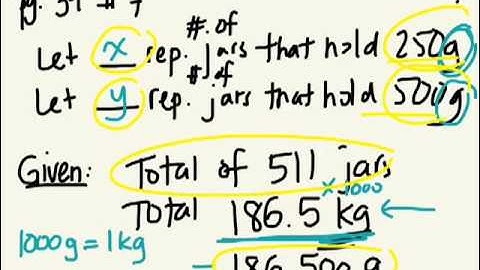 pg. 51 # 7
#. of
Let x rep. jars that hold 250g
# of
Let y rep. jars that hold 500g
Given: Total of 511 jars
x 1000
Total 186.5 kg ←
1000g = 1kg
186 500 g